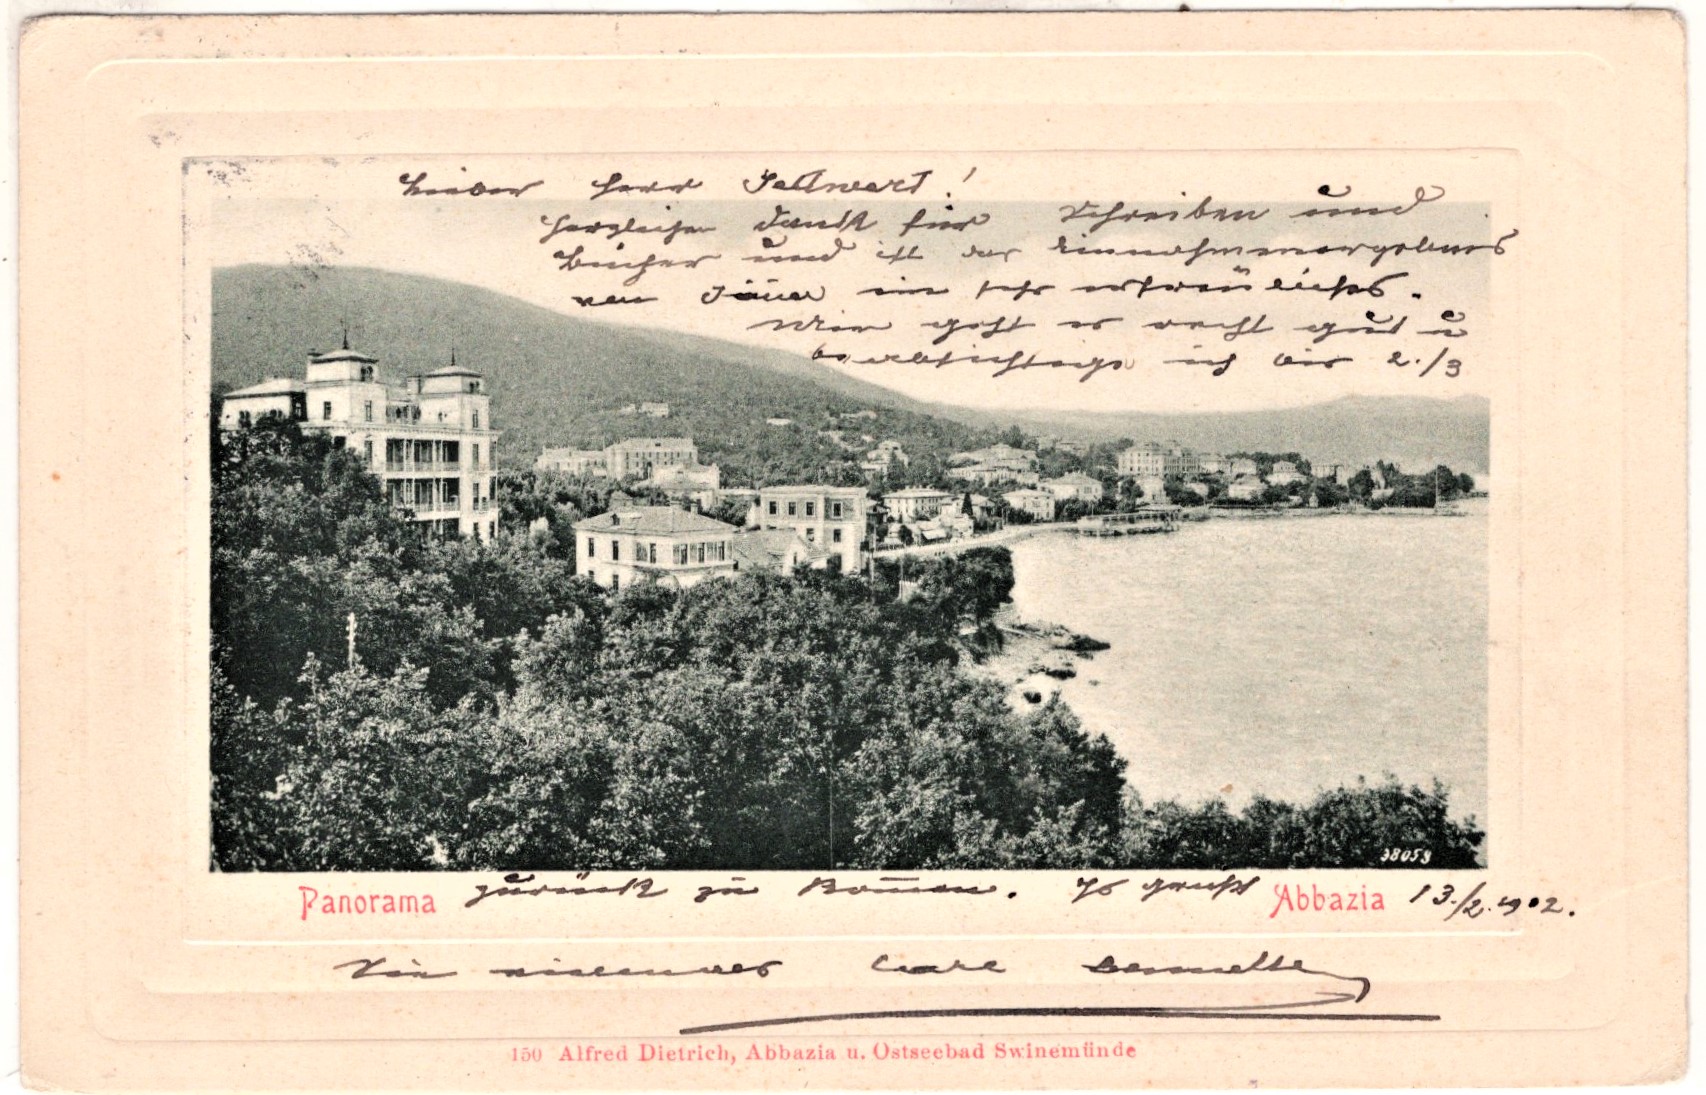 Lieber Herr Sellwart!
Herzlichen Dank für Schreiben und
Bücher und ist das Einnahmenergebnis
von Jäner ein sehr erfreuliches.
Mir geht es recht gut u
beabsichtige ich bis 2./3
Panorama zurück zu kommen. Es grüßt Abbazia 13./2. 1902.
Sie vielmals Carl
150 Alfred Dietrich, Abbazia u. Ostseebad Swinemünde
38059